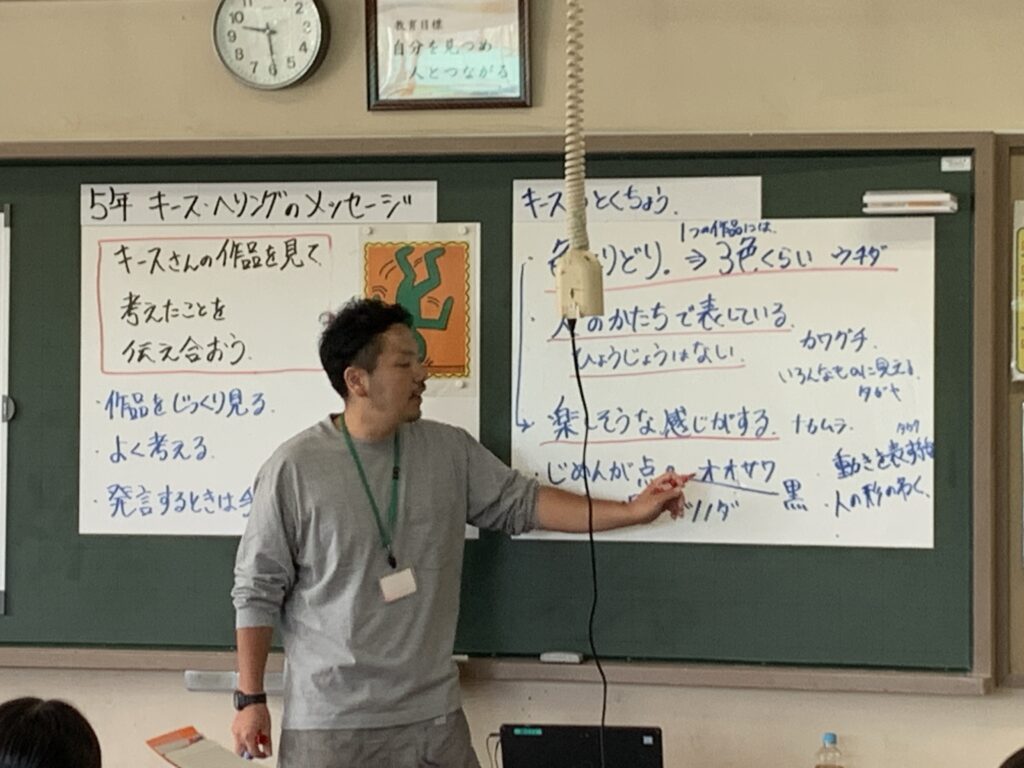 教育目標
自分を見つめ
人とつながる
5年 キース・ヘリングのメッセージ
キースさんの作品を見て
考えたことを
伝え合おう。
・作品をじっくり見る。
・よく考える。
・発言するときは
キース とくちょう。
1つの作品には、
りどり。⇒3色くらい ウチダ
・人のかたちで表している。
ひょうじょうはない。
カワグチ。
いろんなものに見える
タガヤ
楽しそうな感じがする。 ナカムラ
・じめんが点 オオサワ
黒
・動きを表す
・人の形のわく。